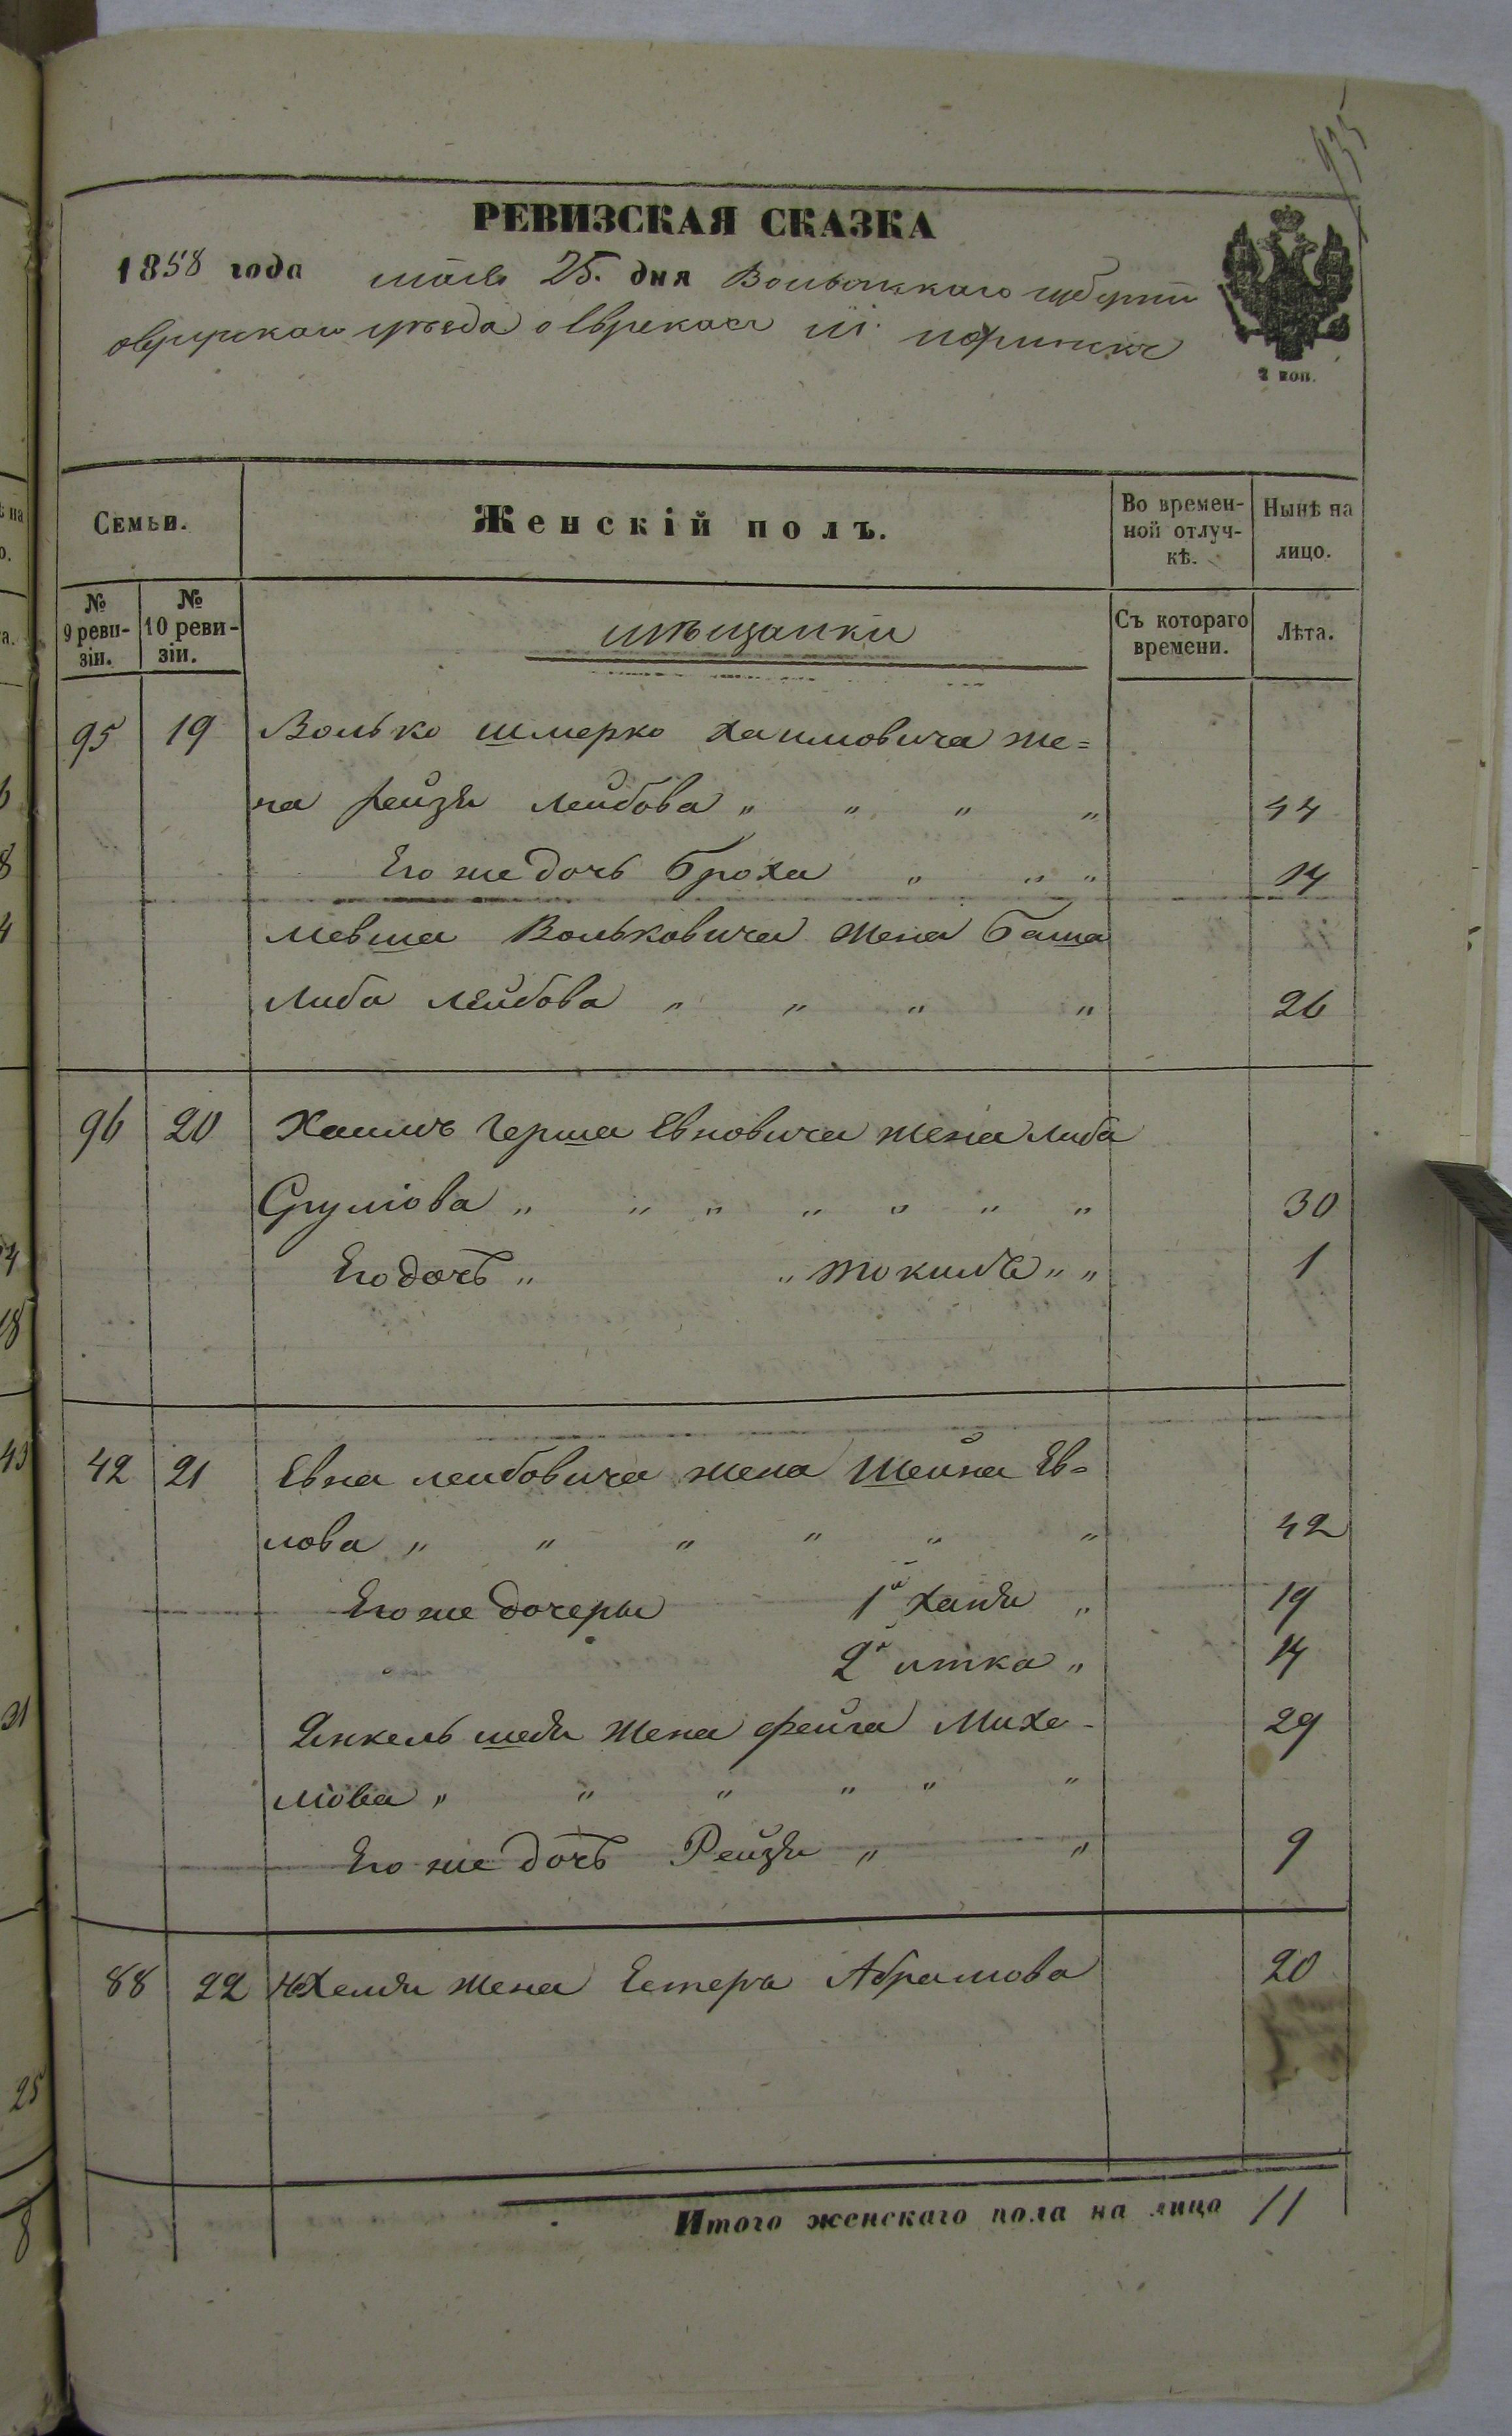 935
РЕВИЗСКАЯ СКАЗКА
1858 года маія 25. дня Волынскаго губерніи
овруцкаго уезда о Евреяхъ м.
2 коп.
Семьи.
Женскій полъ.
Во времен-
ной отлуч-
кѣ.
Нынѣ на
лицо.
№
9 реви-
зіи.
№
10 реви-
зіи.
мѣщанки
Съ котораго
времени.
Лѣта.
95 19 Волько шмерко Хаимовича же=
на рейзя Лейбова „ „ „ „ 44
Его же дочь Броха „ „ „ 14
Мевша Вольковича жена Баша
Либа Лейбова „ „ „ „ 26
96 20 Хаимъ Герша Евновича жена либа
Срулiова „ „ „ „ „ „ „ 30
Его дочь „ „ „ „ 1
42 21 Евна лейбовича жена Шейна Ев=
нова „ „ „ „ „ „ 42
Его же дочеры 1я Хайя „ 19
2я итка „ 14
Янкель жена фейга Михе- 29
лiова „ „ „ „ „ „
Его же дочь Рейзя „ „ 9
88 22 жена Естера Абрамова 20
Итого женскаго пола на лицо 11